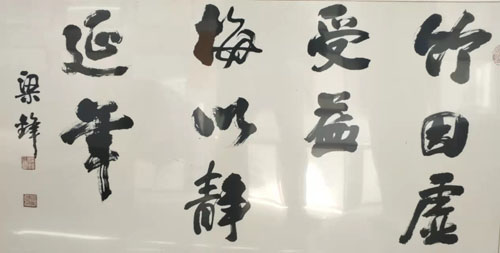 竹因虚
受益
梅以静
延年
梁锋